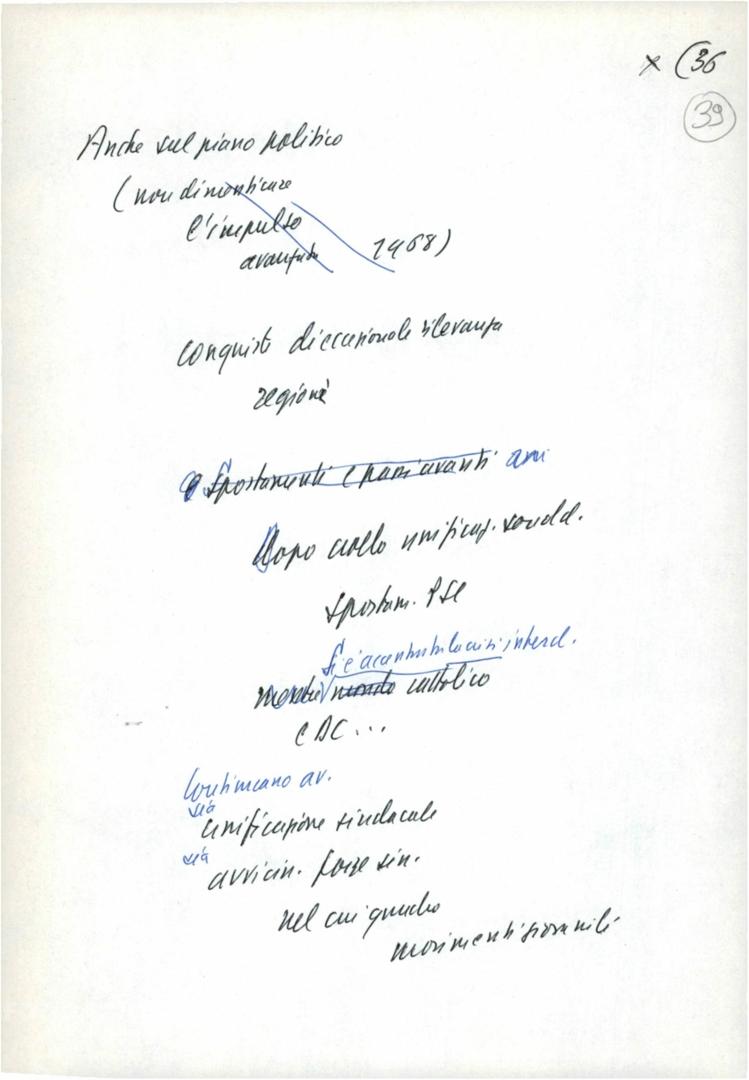 x (36
39
Anche sul piano politico
(non dimenticare
l'impulso
avanzata 1968)
conquiste di eccezionale rilevanza
regioni
Spostamenti e passi avanti
Dopo crollo unificaz. socald.
Spostam. PSI
Si è accentuata la crisi interd.
mentre mondo cattolico
e DC...
Continuano av.
sia
unificazione sindacale
sia
avvicin. forze sin.
nel cui quadro
movimenti giovanili